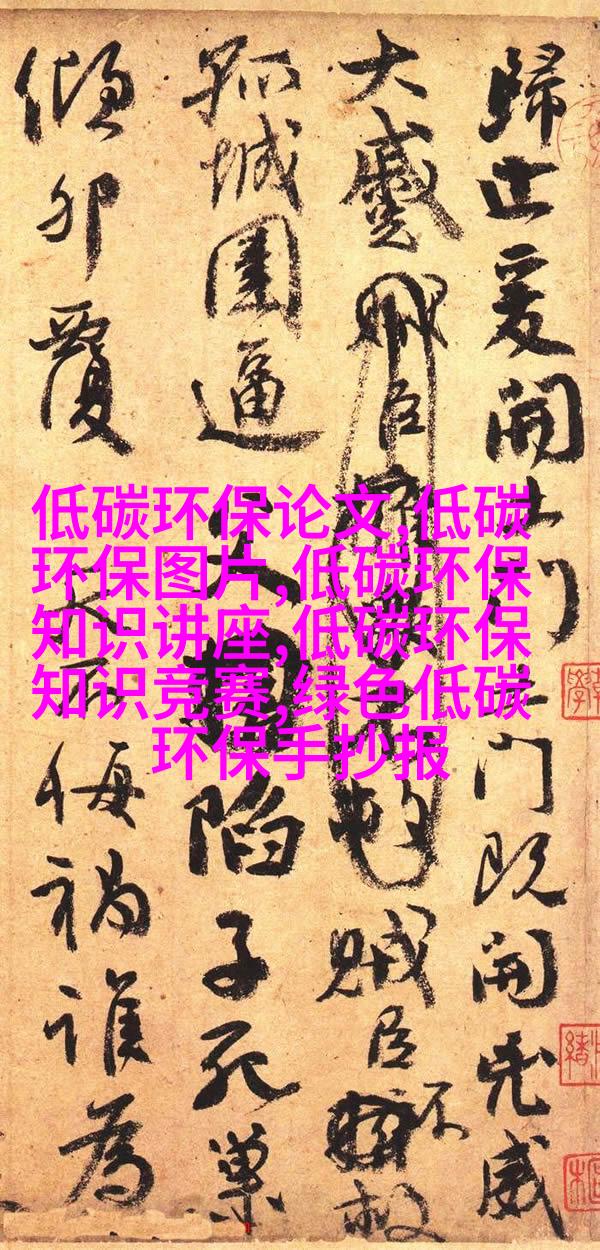 低碳环保论文,低碳
环保图片,低碳环保
知识讲座,低碳环保
知识竞赛,绿色低碳
环保手抄报
歸止爰開土門土門既開兇威
大蹙賊臣賊臣不救
孤城圍逼父陷子死巢
傾卵覆天不悔禍誰為